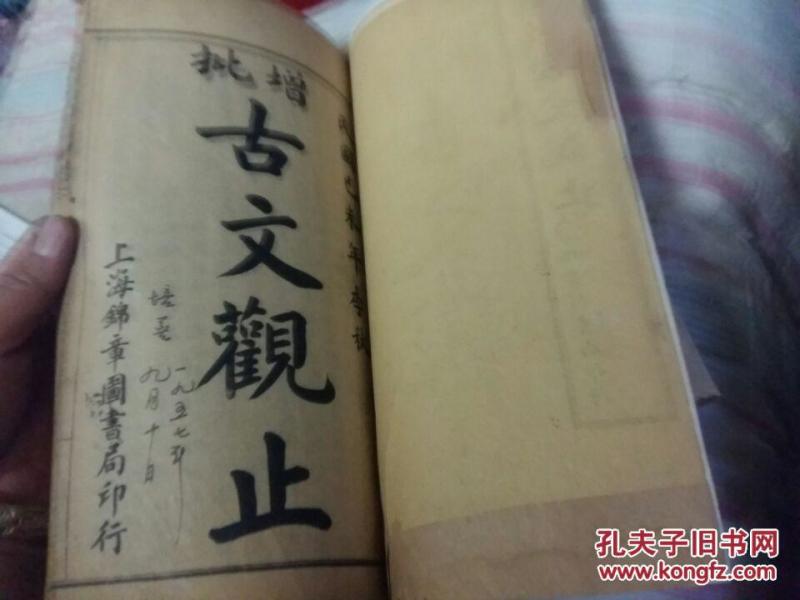 增批
古文觀止
上海錦章圖書局印行
一九五七年
九月十日
孔夫子旧书网
www.kongfz.com